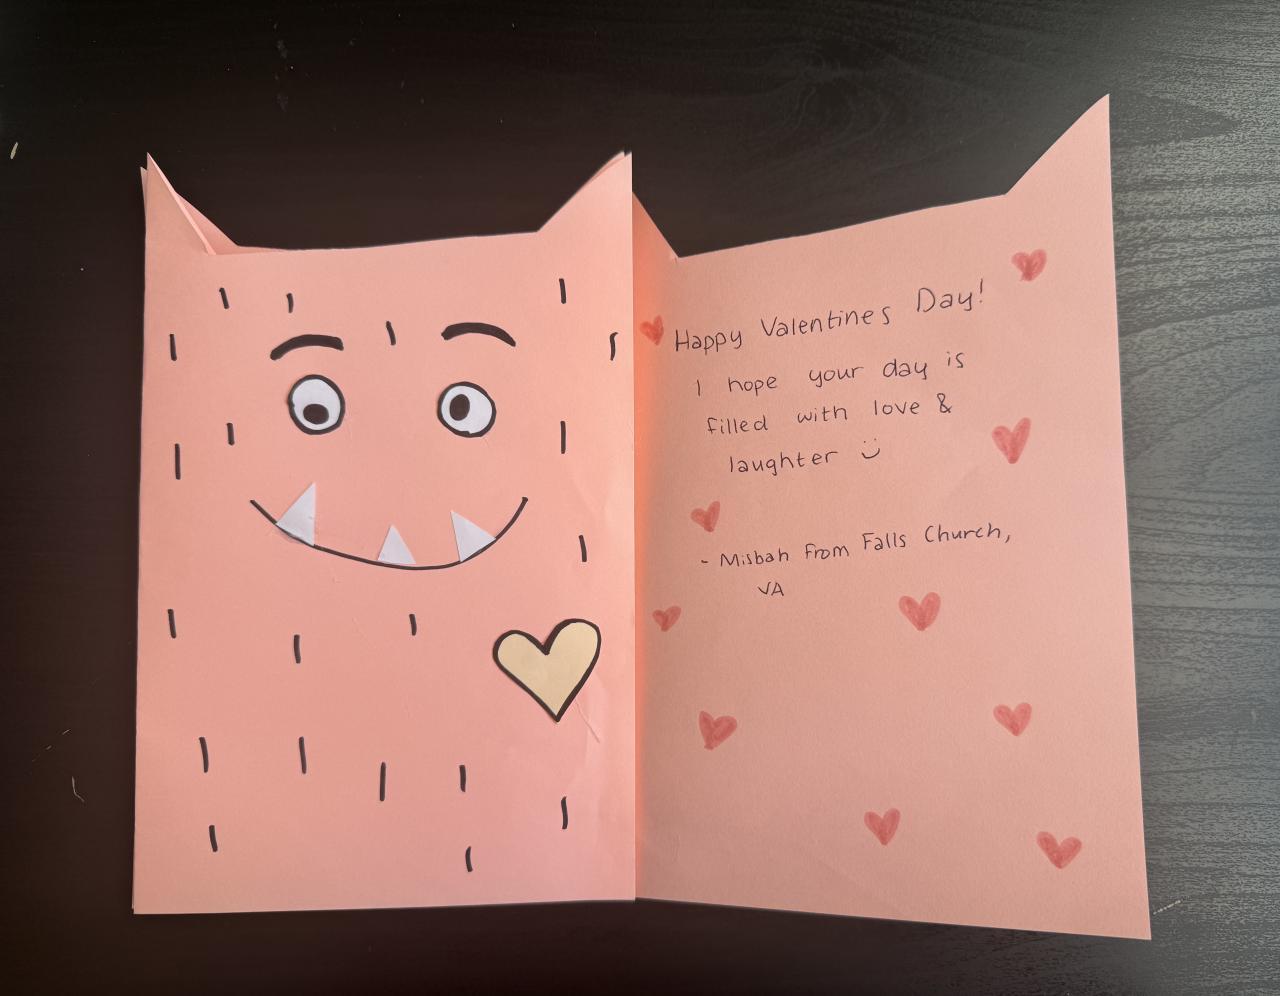 Happy Valentines Day!
I hope your day is
filled with love &
laughter :)
- Misbah from Falls Church,
VA